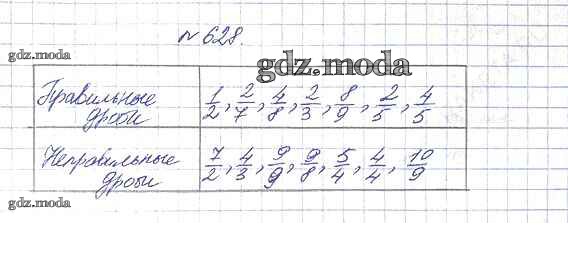 №628.
gdz.moda
gdz.moda
Правильные дроби
1/2, 2/7, 4/8, 2/3, 8/9, 2/5, 4/5
Неправильные дроби
7/2, 4/3, 9/9, 9/8, 5/4, 4/4, 10/9
gdz.moda
gdz.moda